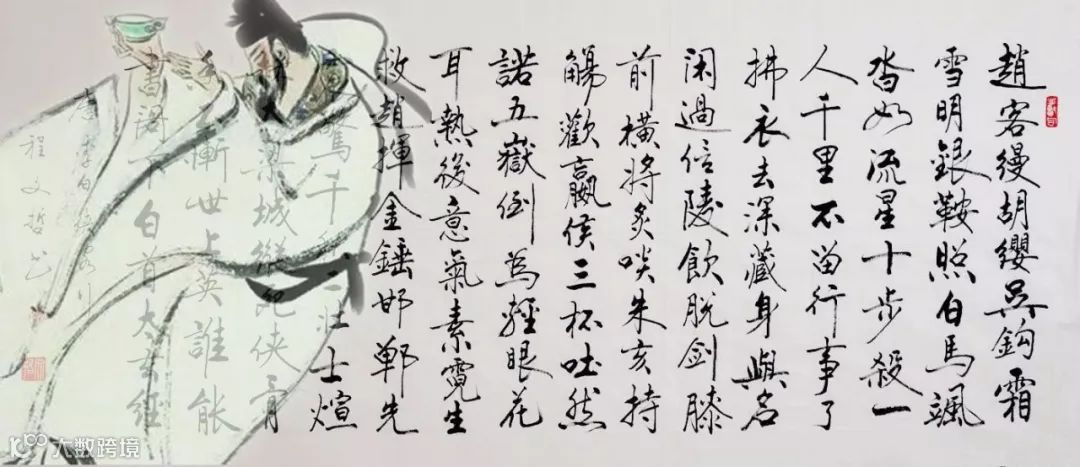 趙客缦胡纓吴鈎霜
雪明銀鞍照白馬颯
沓如流星十步殺一
人千里不留行事了
拂衣去深藏身與名
闲過信陵飲脱剑膝
前横將炙啖朱亥持
觴歡嬴侯三杯吐然
諾五嶽倒為輕眼花
耳熱後意氣素霓生
救趙揮金錘邯鄲先
驚千二壮士煊
大梁城縱死侠骨
慚世上英誰能
書阁下白首太玄经
唐李白侠客行
程文哲书
大数跨境